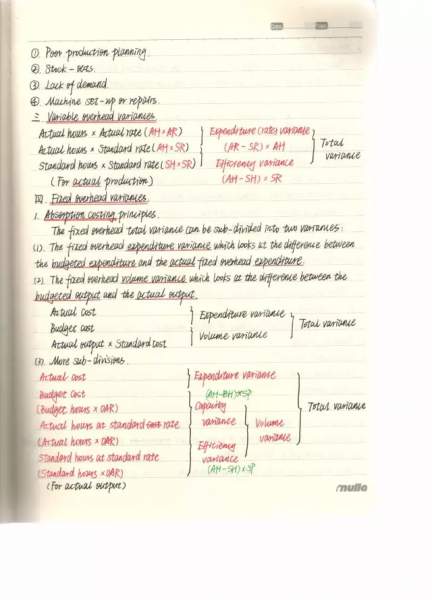 ①. Poor production planning.
②. Stock-outs.
③. Lack of demand.
④. Machine set-up or repairs.
三. Variable overhead variances
Actual hours × Actual rate (AH×AR) Expenditure (rate) variance
Actual hours × Standard rate (AH×SR) (AR-SR) × AH Total variance
Standard hours × Standard rate (SH×SR) Efficiency variance
(For actual production) (AH-SH) × SR
四. Fixed overhead variances.
1. Absorption costing principles.
The fixed overhead total variance can be sub-divided into two variances:
(1). The fixed overhead expenditure variance which looks at the difference between
the budgeted expenditure and the actual fixed overhead expenditure.
(2). The fixed overhead volume variance which looks at the difference between the
budgeted output and the actual output.
Actual cost Expenditure variance
Budget cost Total variance
Volume variance
Actual output × Standard cost
(3). More sub-divisions.
Actual cost Expenditure variance
Budget cost (AH-BH)×SP
(Budget hours × OAR) Capacity Total variance
Actual hours at standard cost rate variance Volume
(Actual hours × OAR) Efficiency variance
Standard hours at standard rate variance
(Standard hours × OAR) (AH-SH)×SP
(For actual output)
nulla